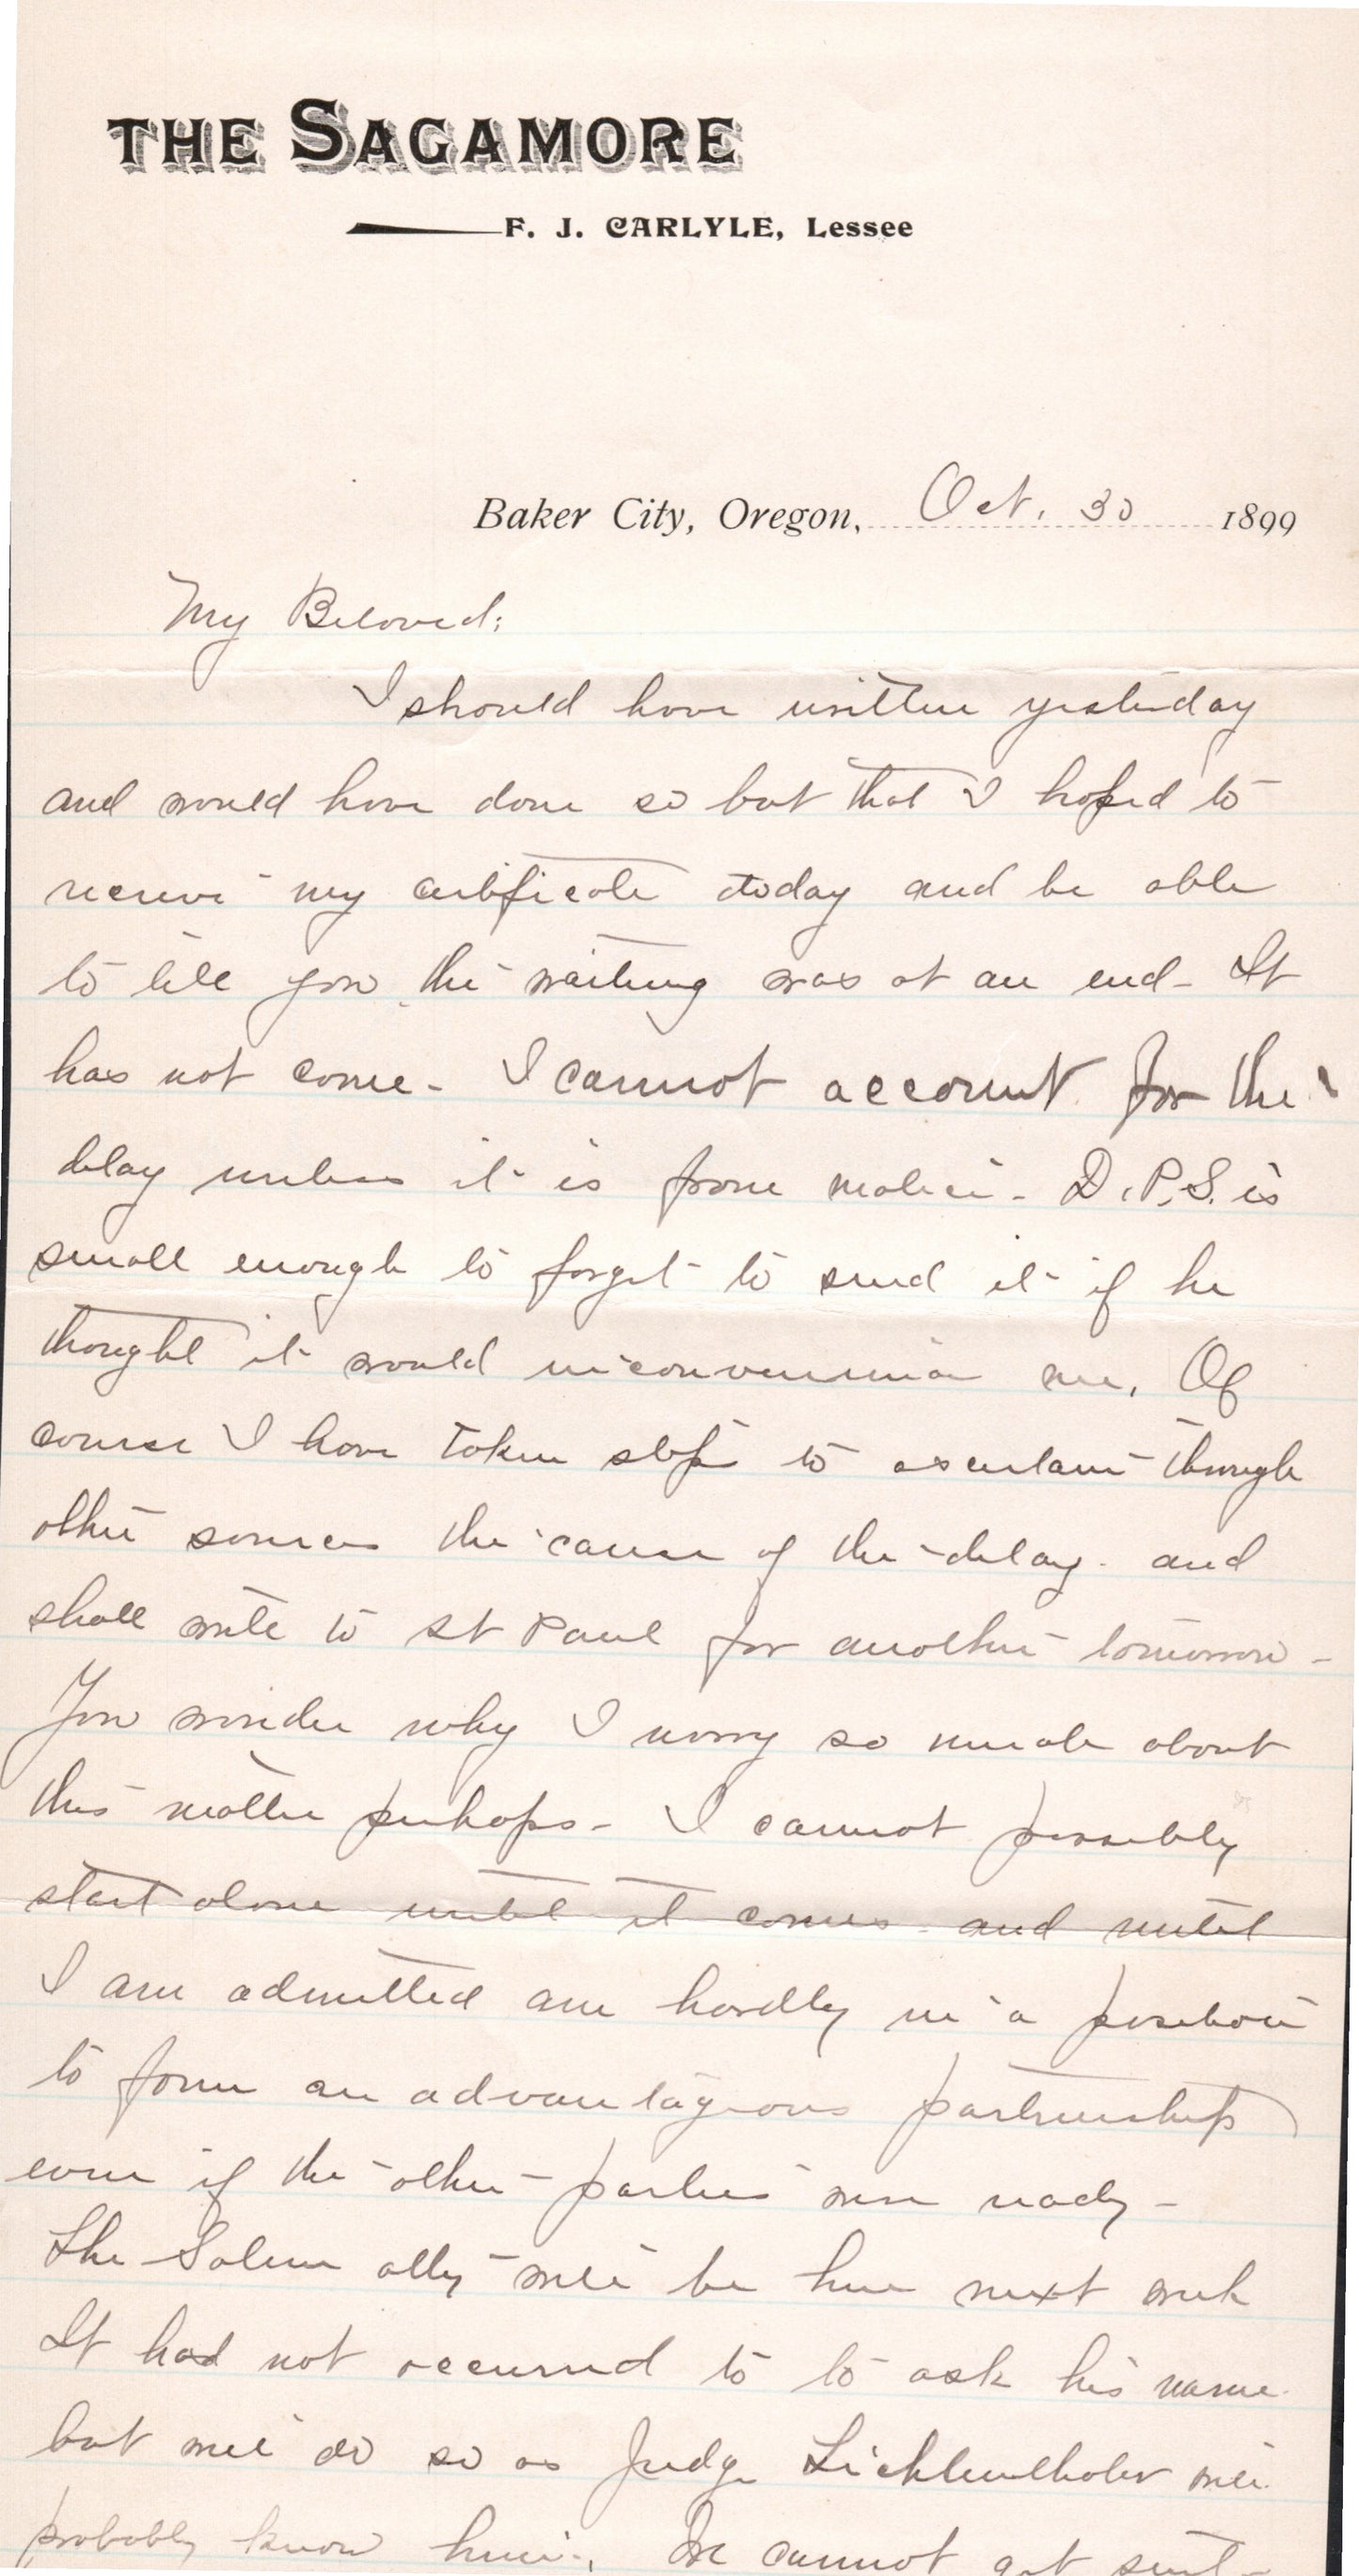 THE SAGAMORE
F. J. CARLYLE, Lessee
Baker City, Oregon, Oct. 30 1899
My Beloved:
I should have written yesterday
and would have done so but that I hoped to
receive my certificate today and be able
to tell you the waiting was at an end - It
has not come - I cannot account for the
delay unless it is from malice - D. P. S. is
small enough to forget to send it if he
thought it would inconvenience me. Of
course I have taken steps to ascertain through
other sources the cause of the delay - and
shall write to St Paul for another tomorrow -
You wonder why I worry so much about
this matter perhaps - I cannot possibly
start alone until it comes - and until
I am admitted am hardly in a position
to form an advantageous partnership
even if the other parties were ready -
The Salem atty will be here next week
It had not occurred to to ask his name
but will do so as Judge will
probably know him. We cannot get